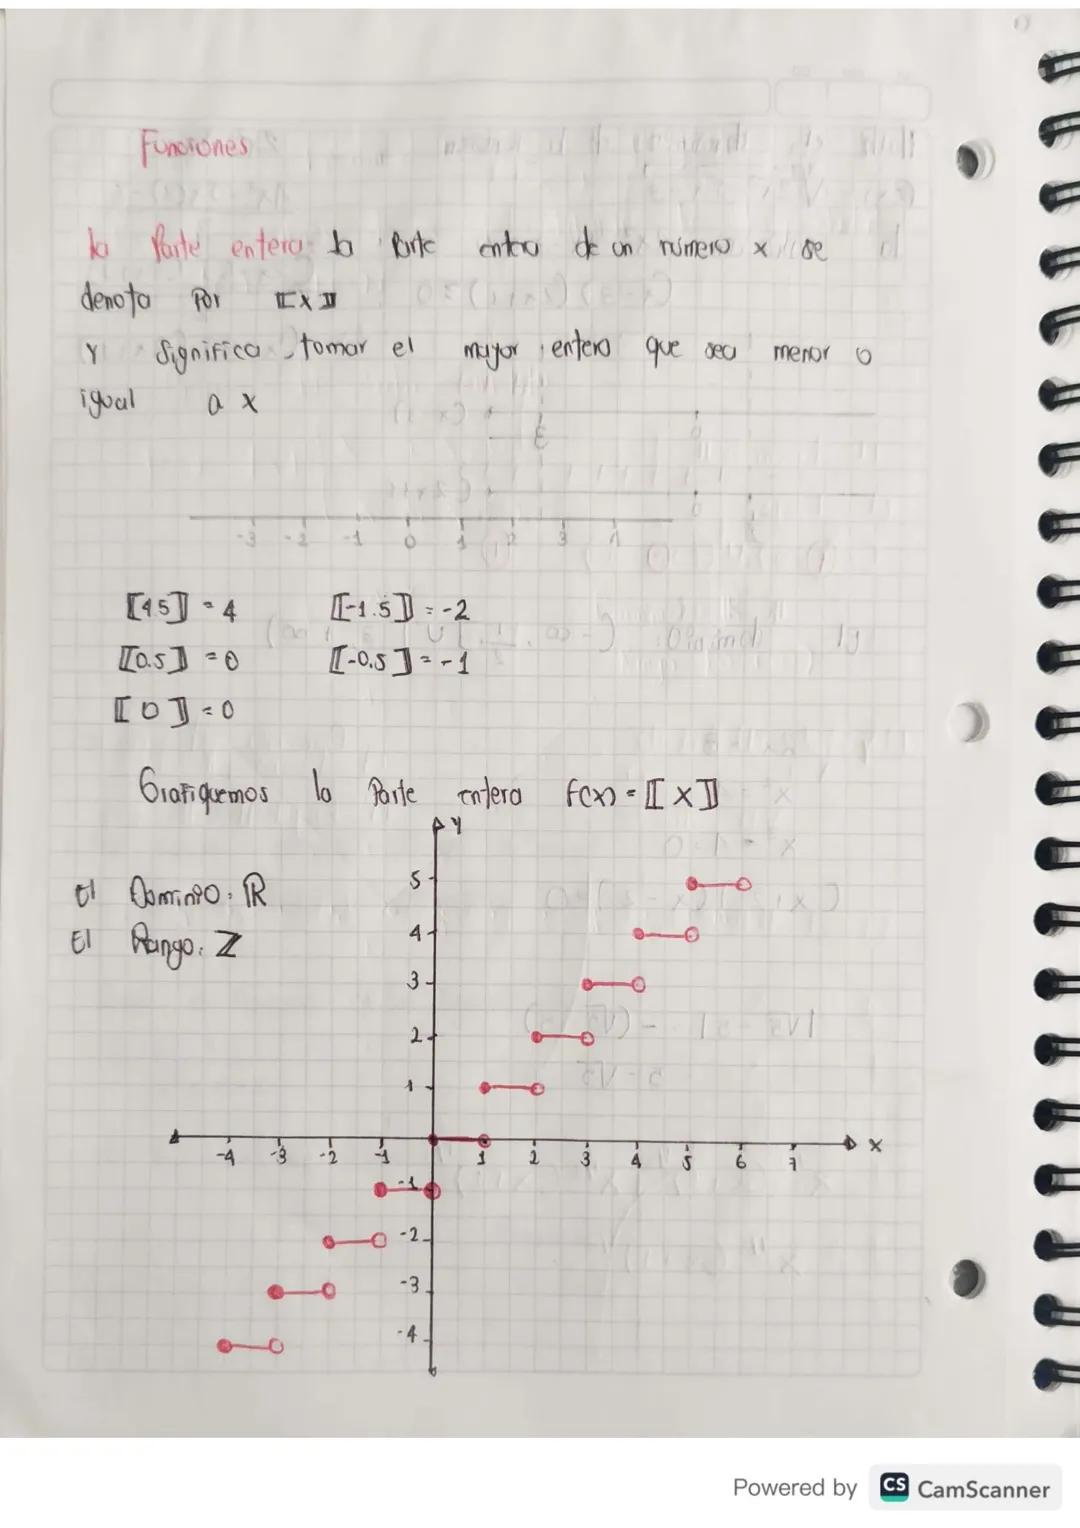 Funciones
la Parte entera la Parte entera de un número x se
denota por ⟦x⟧
Y significa tomar el mayor entero que sea menor o
igual a x
-3 -2 -1 0 1 2 3 4
⟦4.5⟧ = 4 ⟦-1.5⟧ = -2
⟦0.5⟧ = 0 ⟦-0.5⟧ = -1
⟦0⟧ = 0
Grafiquemos la Parte entera f(x) = ⟦x⟧
Y
El Dominio: ℝ
El Rango: Z
5
4
3
2
1
-4 -3 -2 -1 1 2 3 4 5 6 7 X
-1
-2
-3
-4
Powered by CS CamScanner